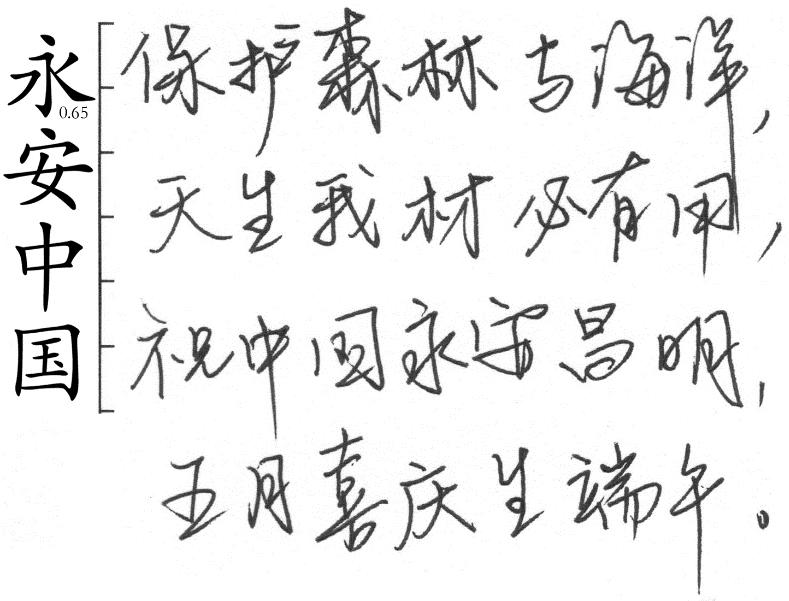 永安中国
0.65
保护森林与海洋，
天生我材必有用，
祝中国永安昌明，
五月喜庆生端午。